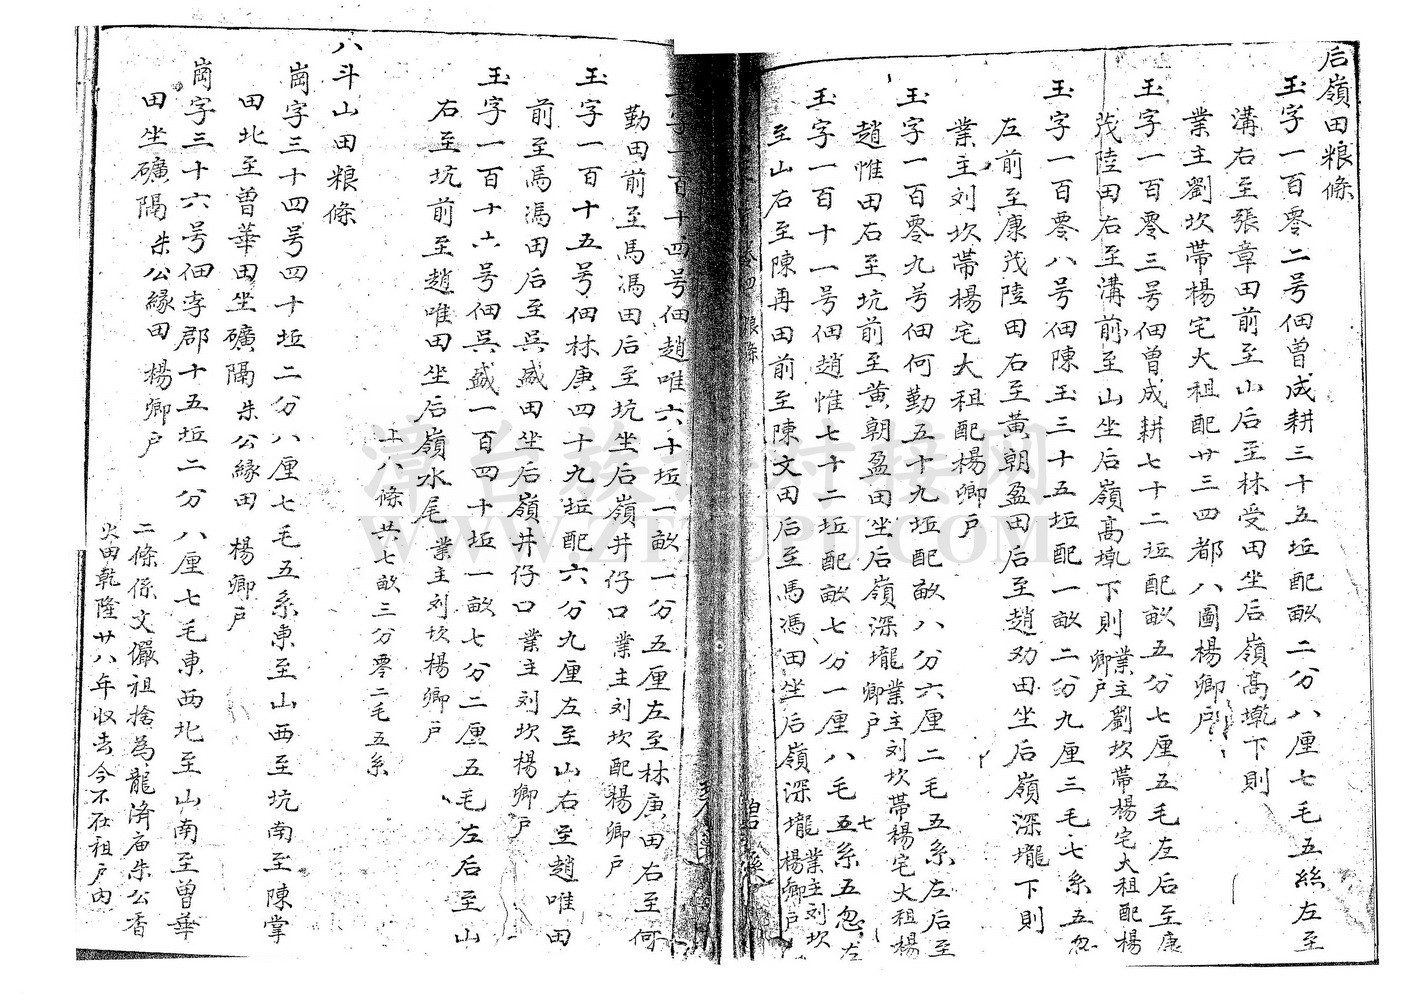 后嶺田粮條
玉字一百零二号佃曾成耕三十五坵配畝二分八厘七毛五絲左至
溝右至張章田前至山后至林受田坐后嶺高墘下則
業主劉坎帶楊宅大租配廿三四都八圖楊卿户
玉字一百零三号佃曾成耕七十二坵配畝五分七厘五毛左后至康
茂陸田右至溝前至山坐后嶺高墘下則業主劉坎帶楊宅大租配楊卿户
玉字一百零八号佃陳玉三十五坵配一畝二分九厘三毛七系五忽
左前至康茂陸田右至黄朝盈田后至趙劝田坐后嶺深壠下則
業主刘坎帶楊宅大租配楊卿户
玉字一百零九号佃何勤五十九坵配畝八分六厘二毛五系左后至
趙惟田右至坑前至黄朝盈田坐后嶺深壠業主刘坎帶楊宅大租楊卿户
玉字一百十一号佃趙惟七十二坵配畝七分一厘八毛七五系五忽左
至山右至陳再田前至陳文田后至馬馮田坐后嶺深壠業主刘坎楊卿户
卷四 粮條
碧溪
字一百十四号佃趙唯六十坵一畝一分五厘左至林庚田右至何
勤田前至馬馮田后至坑坐后嶺井仔口業主刘坎配楊卿户
玉字一百十五号佃林庚四十九坵配六分九厘左至山右至趙唯田
前至馬馮田后至吳盛田坐后嶺井仔口業主刘坎楊卿户
玉字一百十六号佃吳盛一百四十坵一畝七分二厘五毛左后至山
右至坑前至趙唯田坐后嶺水尾業主刘坎楊卿户
上八條共七畝三分零二毛五系
八斗山田粮條
崗字三十四号四十坵二分八厘七毛五系東至山西至坑南至陳掌
田北至曾華田坐礦隔朱公緣田 楊卿户
崗字三十六号佃李郡十五坵二分八厘七毛東西北至山南至曾華
田坐礦隔朱公緣田楊卿户
二條係文儼祖捨為龍濟庙朱公香
火田乾隆廿八年收去今不在祖户内
漳台族谱对接网
WWW.ZTZUPU.COM